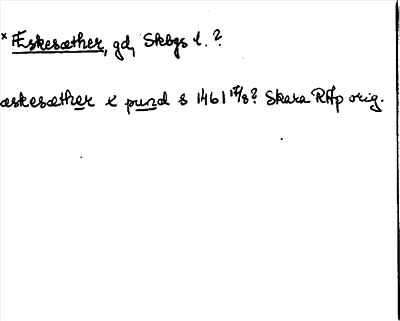 * Æskesæther, gd, Skbgs l. ?
æskesæther x pund s 1461 17/8? Skara RAp orig.